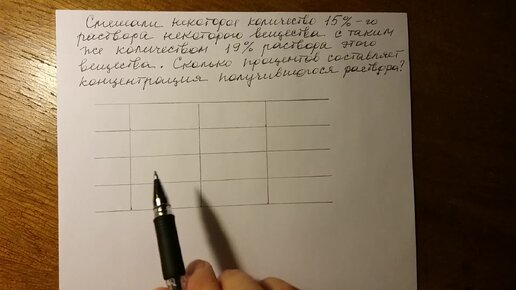 Смешали некоторое количество 15%-го
раствора некоторого вещества с таким
же количеством 19% раствора этого
вещества. Сколько процентов составляет
концентрация получившегося раствора?